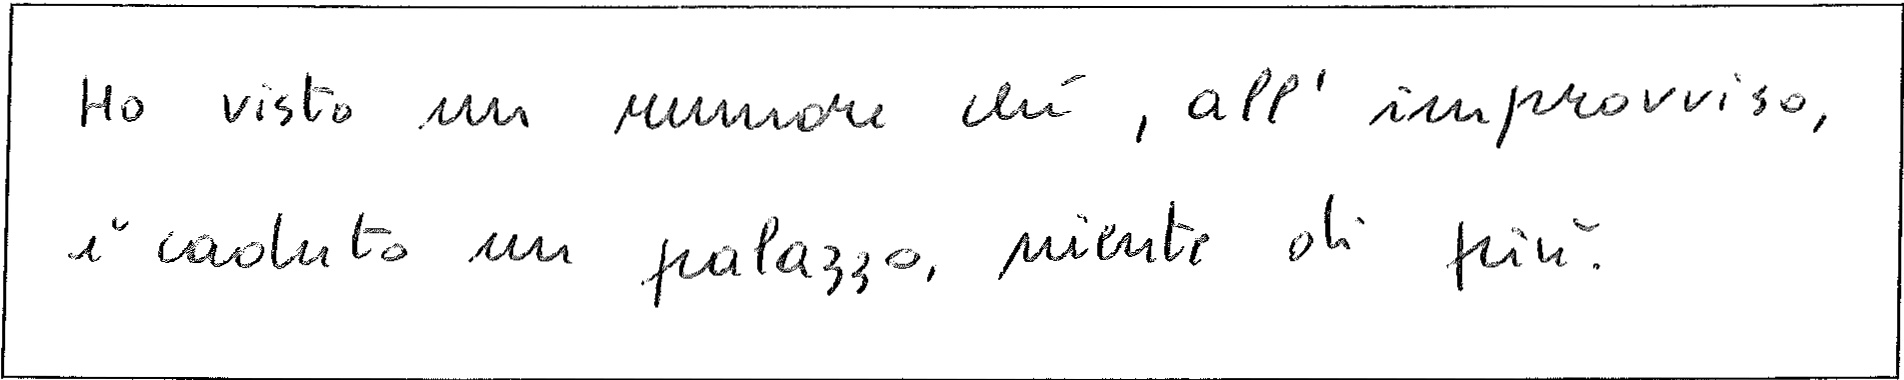 Ho visto un rumore e lì, all'improvviso,
è caduto un palazzo, niente di più.